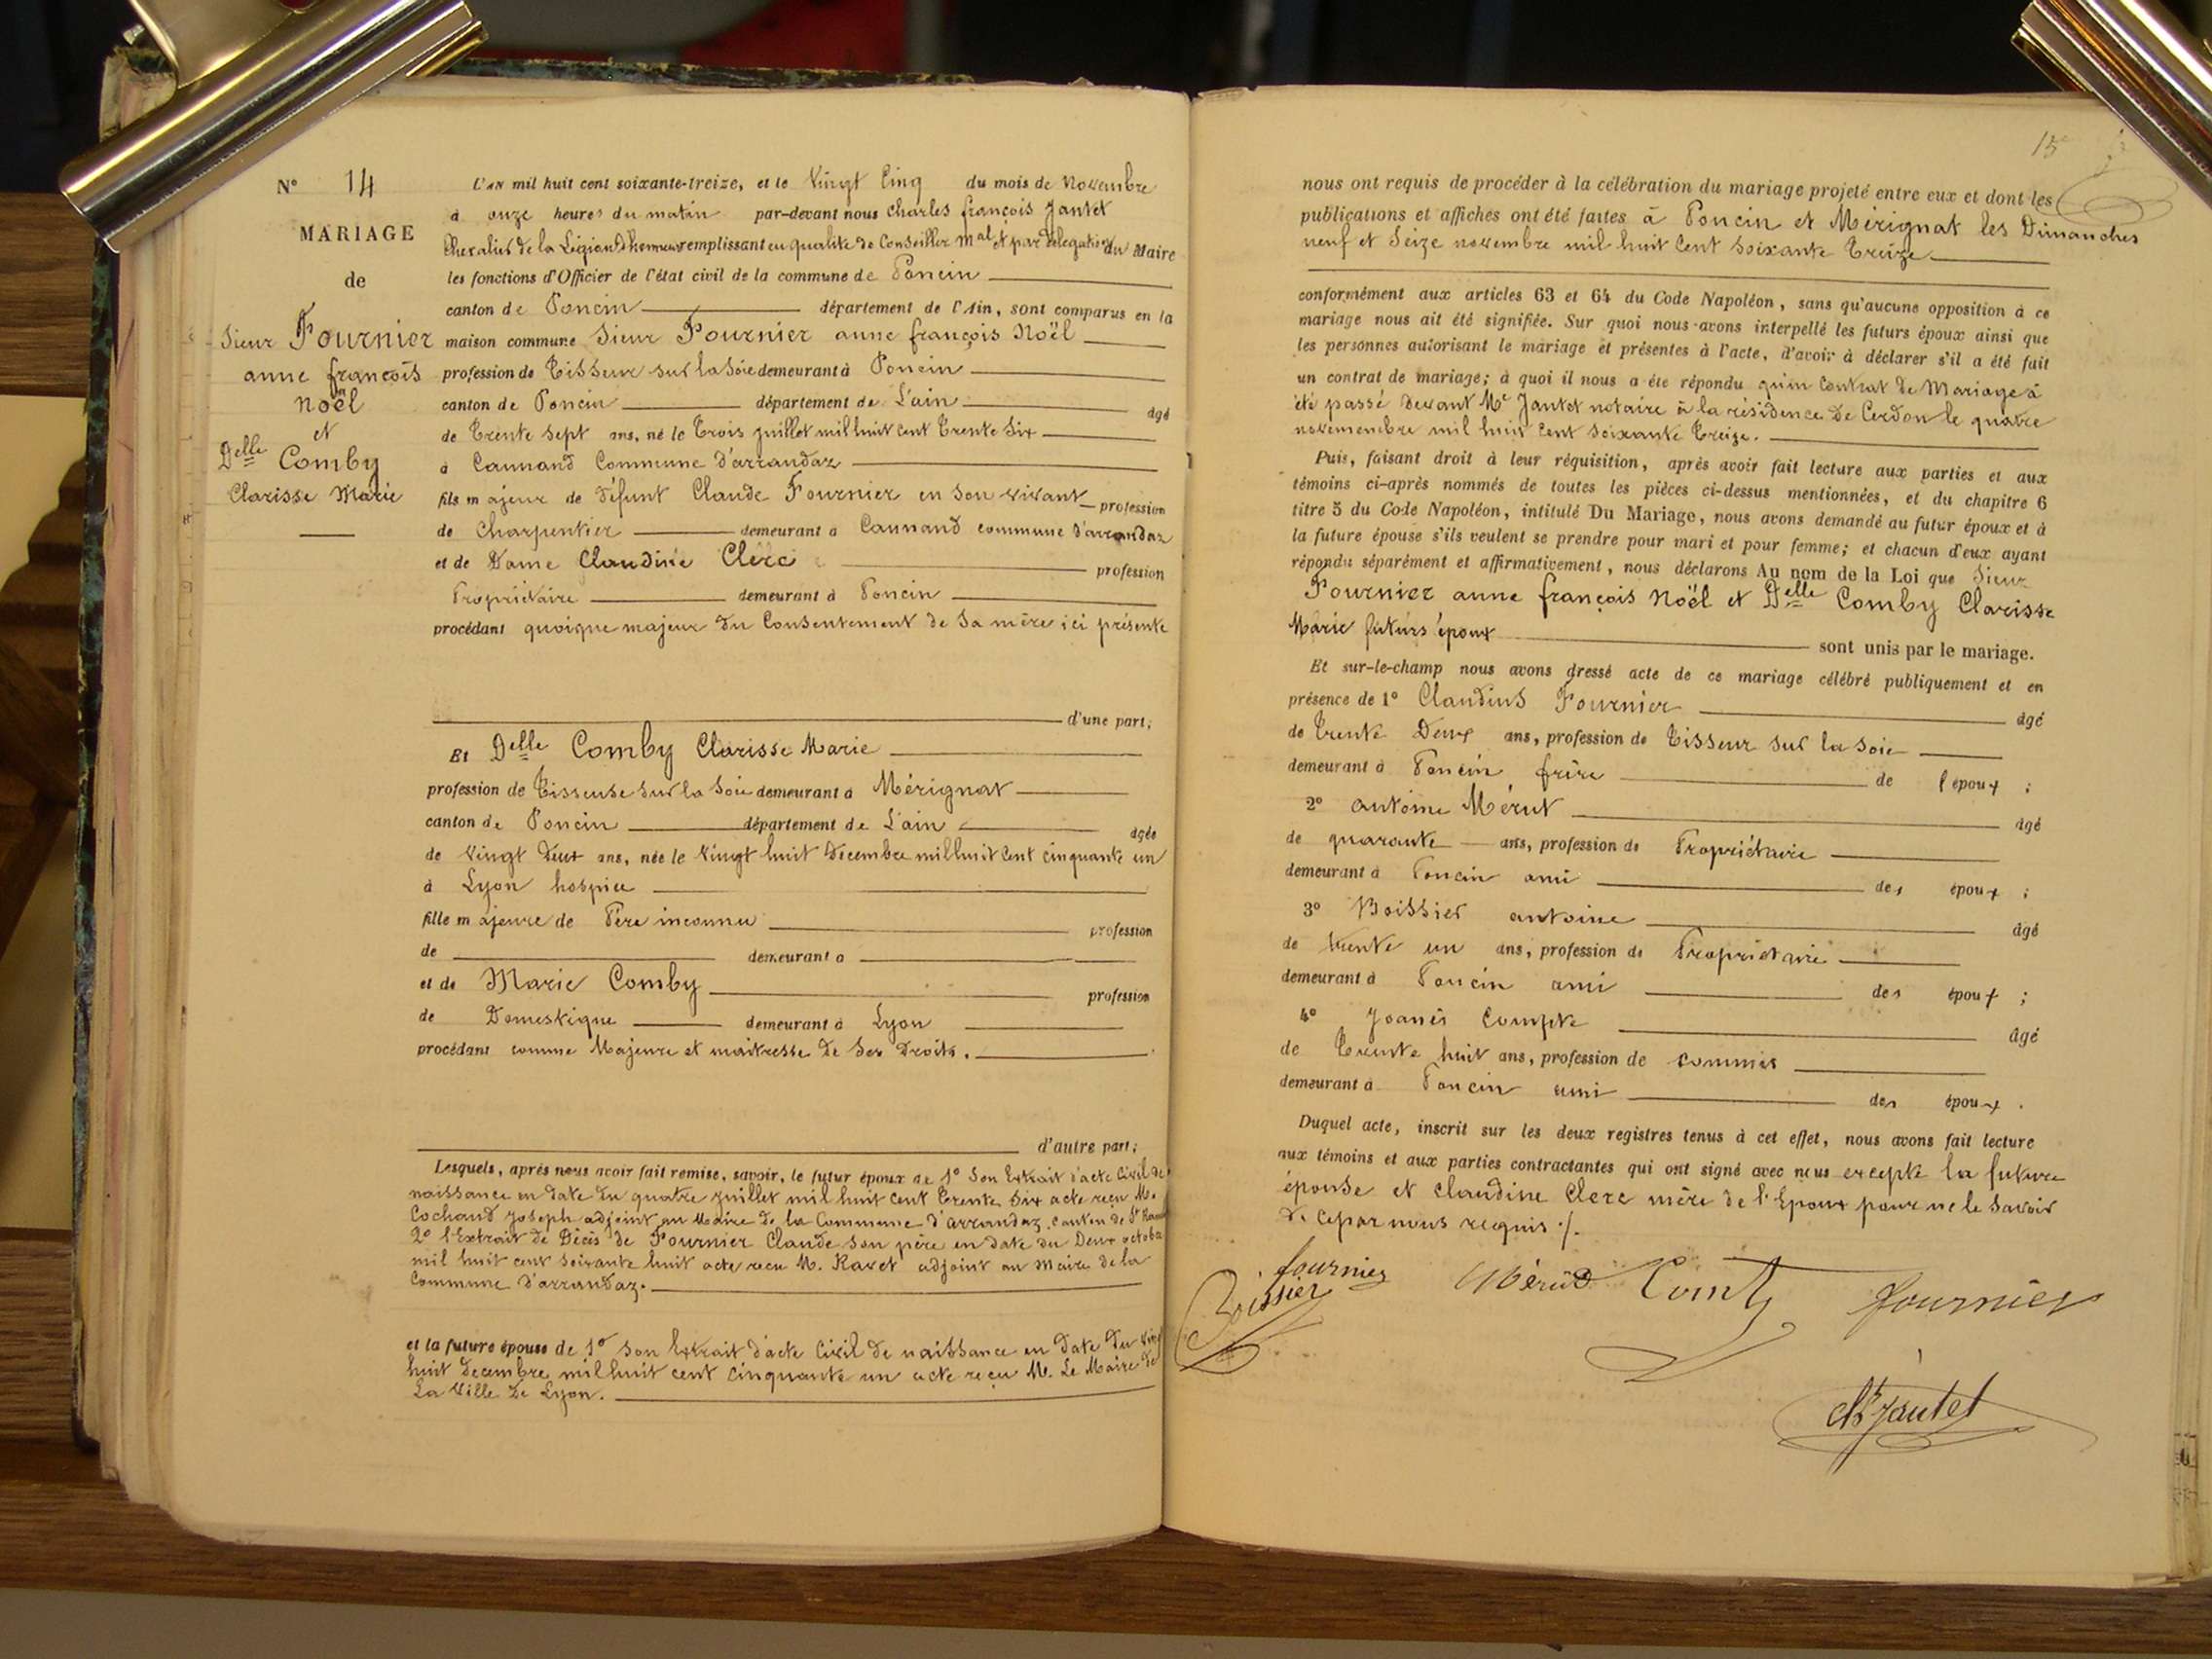 N° 14
MARIAGE
de
Sieur Fournier
anne françois
noël
et
Delle Comby
Clarisse Marie
L'AN mil huit cent soixante-treize, et le Vingt Cinq du mois de Novembre
à onze heures du matin par-devant nous Charles françois Jantet
Chevalier de la Légion d'honneur remplissant en qualité de Conseiller mal et par délégation du Maire
les fonctions d'Officier de l'état civil de la commune de Poncin
canton de Poncin département de l'Ain, sont comparus en la
maison commune Sieur Fournier anne françois Noël
profession de Tisseur sur la Soie demeurant à Poncin
canton de Poncin département de L'ain âgé
de Trente Sept ans, né le Trois juillet mil huit cent Trente Six
à Caunand Commune d'arrandaz
fils majeur de défunt Claude Fournier en Son vivant profession
de Charpentier demeurant à Caunand commune d'arrandaz
et de Dame Claudine Clerc profession
Propriétaire demeurant à Poncin
procédant quoique majeur du Consentement de Sa mère ici présente
d'une part;
Et Delle Comby Clarisse Marie
profession de Tisseuse Sur la Soie demeurant à Mérignat
canton de Poncin département de L'ain âgée
de Vingt deux ans, née le Vingt huit Decembre mil huit Cent cinquante un
à Lyon hospice
fille majeure de Père inconnu profession
de demeurant à
et de Marie Comby profession
de Domestique demeurant à Lyon
procédant comme Majeure et maitresse de Ses Droits.
d'autre part;
Lesquels, après nous avoir fait remise, savoir, le futur époux de 1° Son Extrait d'acte Civil de
naissance en date du quatre juillet mil huit cent Trente Six acte reçu M.
Cochand Joseph adjoint au Maire de la Commune d'arrandaz, canton de St
2° l'Extrait de Décès de Fournier Claude Son père en date du Deux octobre
mil huit cent Soixante huit acte reçu M. Ravet adjoint au Maire de la
Commune d'arrandaz.
et la future épouse de 1° Son Extrait d'acte Civil de naissance en date du Vingt
huit decembre mil huit cent Cinquante un acte reçu M. Le Maire de
La Ville de Lyon.
15e
nous ont requis de procéder à la célébration du mariage projeté entre eux et dont les
publications et affiches ont été faites à Poncin et Mérignat les Dimanches
neuf et Seize novembre mil huit Cent Soixante Treize
conformément aux articles 63 et 64 du Code Napoléon, sans qu'aucune opposition à ce
mariage nous ait été signifiée. Sur quoi nous avons interpellé les futurs époux ainsi que
les personnes autorisant le mariage et présentes à l'acte, d'avoir à déclarer s'il a été fait
un contrat de mariage; à quoi il nous a été répondu qu'un Contrat de Mariage à
été passé Devant Me Jantet notaire à la résidence de Cerdon le quatre
novemembre mil huit Cent Soixante Treize.
Puis, faisant droit à leur réquisition, après avoir fait lecture aux parties et aux
témoins ci-après nommés de toutes les pièces ci-dessus mentionnées, et du chapitre 6
titre 5 du Code Napoléon, intitulé Du Mariage, nous avons demandé au futur époux et à
la future épouse s'ils veulent se prendre pour mari et pour femme; et chacun d'eux ayant
répondu séparément et affirmativement, nous déclarons Au nom de la Loi que Sieur
Fournier anne françois Noël et Delle Comby Clarisse
Marie futurs époux sont unis par le mariage.
Et sur-le-champ nous avons dressé acte de ce mariage célébré publiquement et en
présence de 1° Claudius Fournier âgé
de Trente Deux ans, profession de Tisseur sur la Soie
demeurant à Poncin frère de l'époux ;
2° antoine Mérut âgé
de quarante ans, profession de Propriétaire
demeurant à Poncin ami des époux ;
3° Boissier antoine âgé
de trente un ans, profession de Propriétaire
demeurant à Poncin ami des époux ;
4° Joanès Compte âgé
de Trente huit ans, profession de commis
demeurant à Poncin ami des époux .
Duquel acte, inscrit sur les deux registres tenus à cet effet, nous avons fait lecture
aux témoins et aux parties contractantes qui ont signé avec nous excepté la future
épouse et Claudine Clerc mère de l'Epoux pour ne le Savoir
de ce par nous requis ./.
fournier
Boissier
Mérut
fournier
Ch Jantet